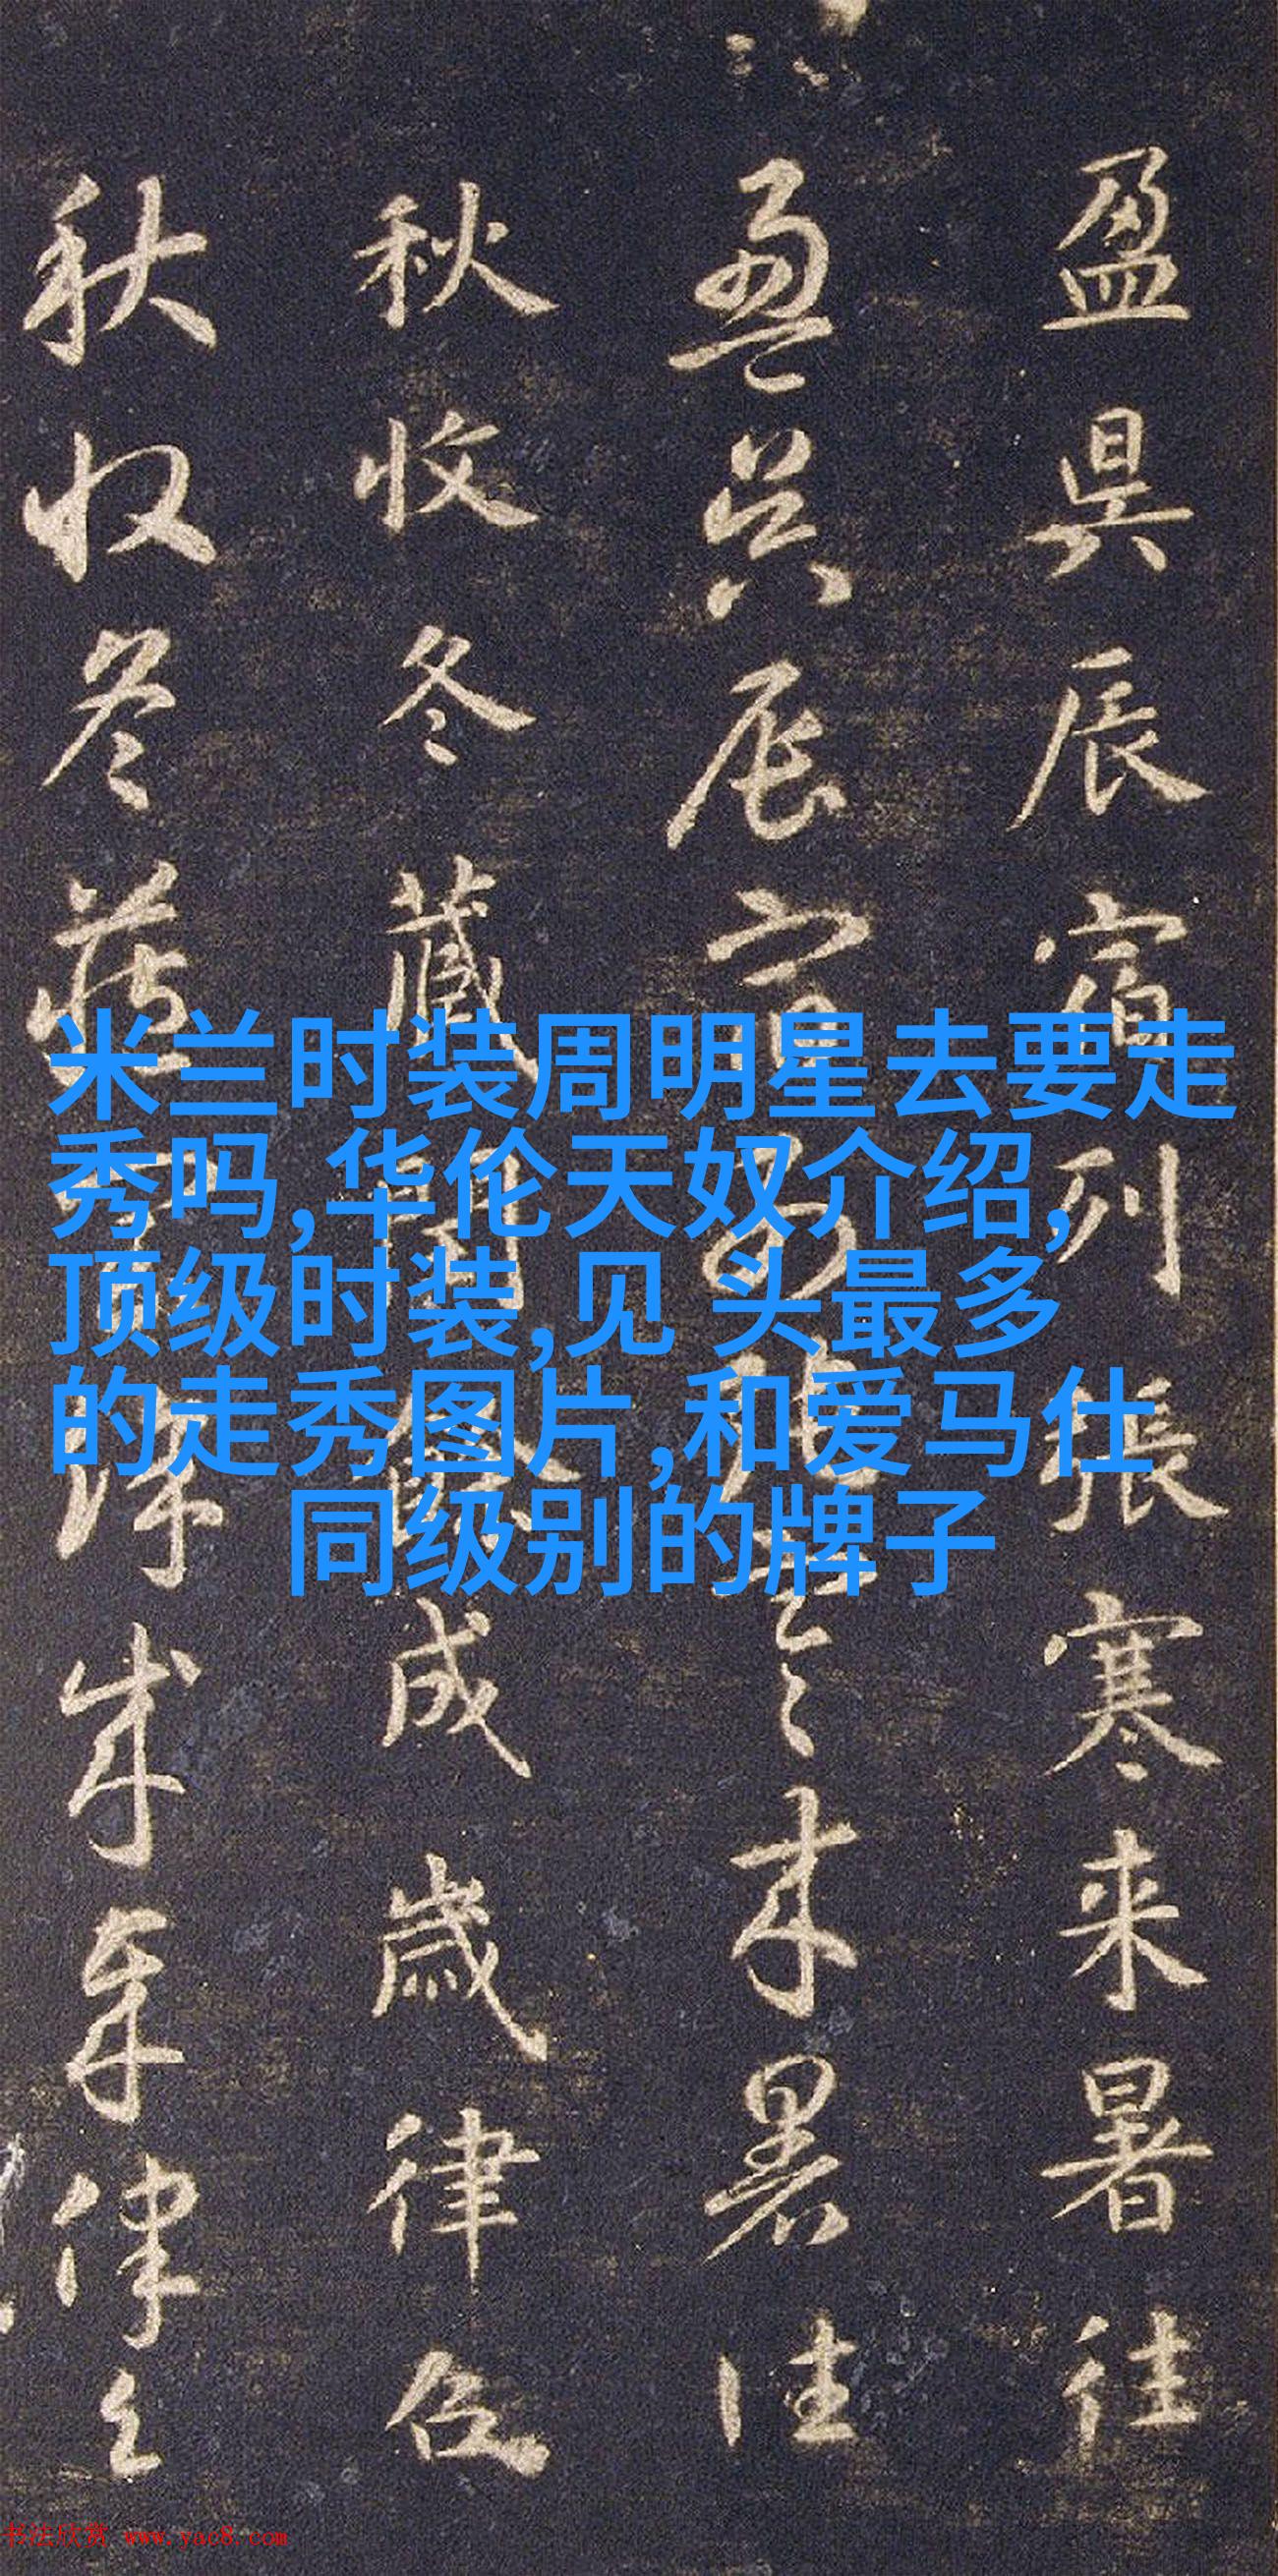 盈昃辰宿列張寒来暑往
盈昃辰宿列張寒来暑往
秋收冬藏閏餘成歳律吕
秋收冬藏
成歳律吕
米兰时装周明星去要走
秀吗,华伦天奴介绍,
顶级时装,见 头最多
的走秀图片,和爱马仕
同级别的牌子
书法欣赏 www.yac8.com